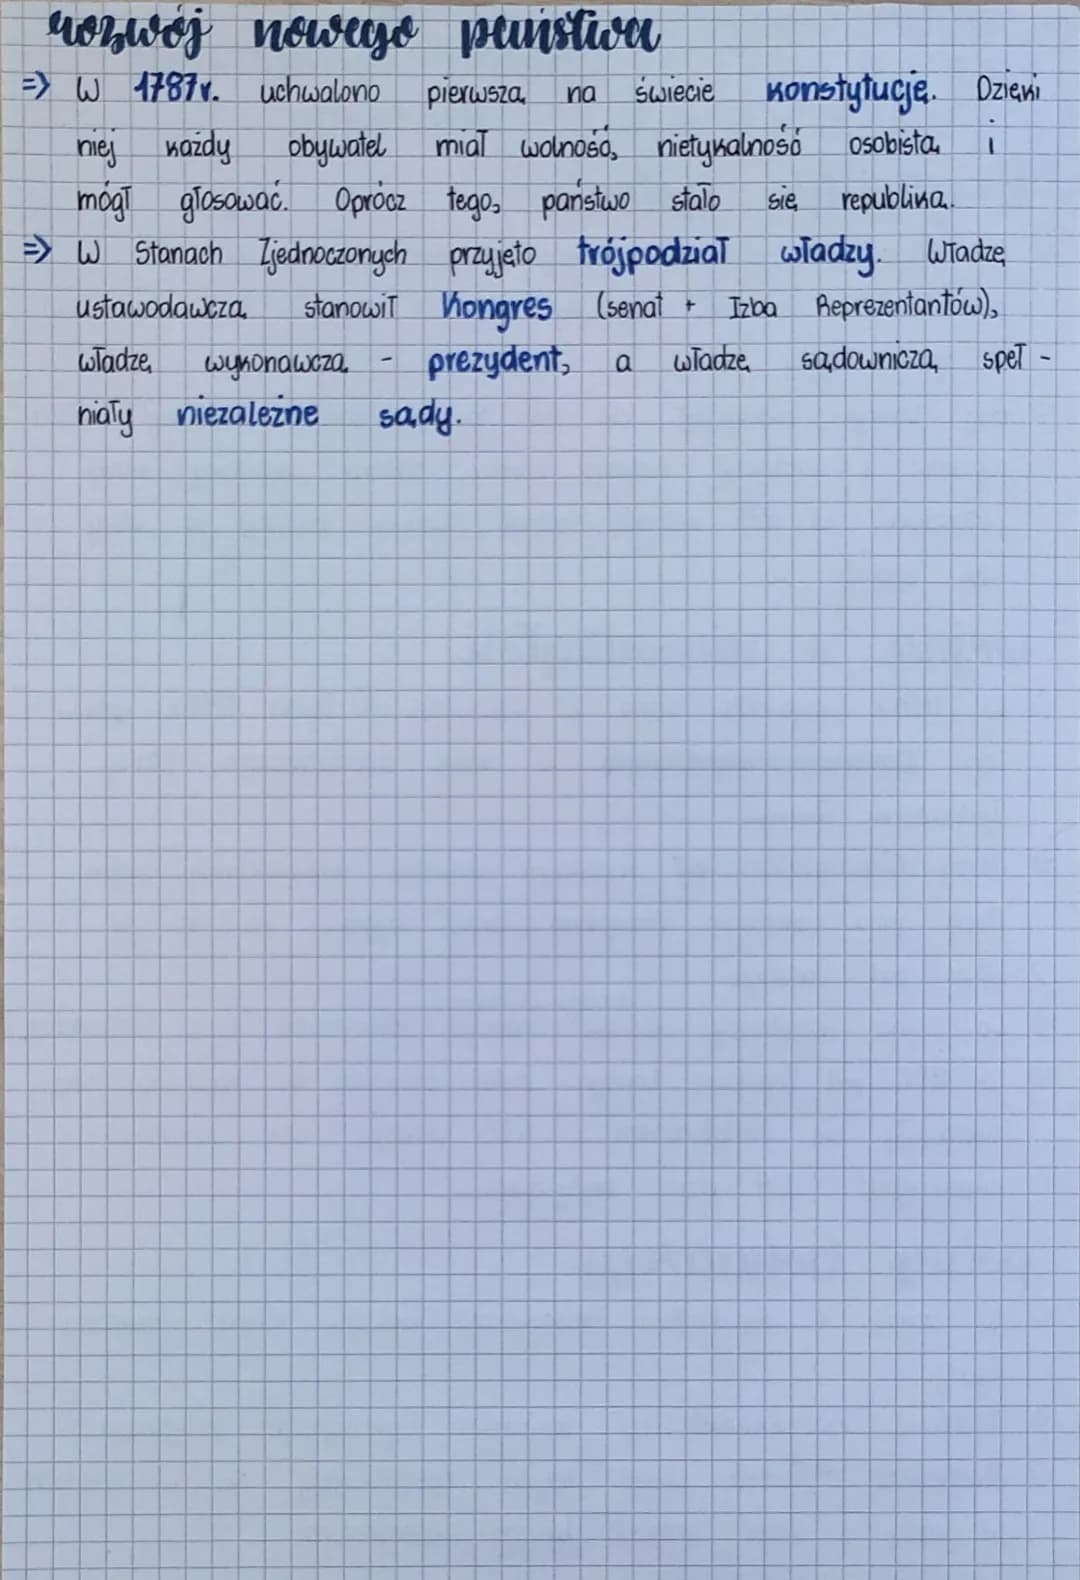 rozwój nowego państwa
=> W 1787r. uchwalono pierwszą na świecie konstytucję. Dzięki
niej każdy obywatel miał wolność, nietykalność osobistą i
mógł głosować. Oprócz tego, państwo stało się republiką.
=> W Stanach Zjednoczonych przyjęto trójpodział władzy. Władzę
ustawodawczą stanowił Kongres (senat + Izba Reprezentantów),
władzę wykonawczą - prezydent, a władzę sądowniczą speł -
niały niezależne sądy.